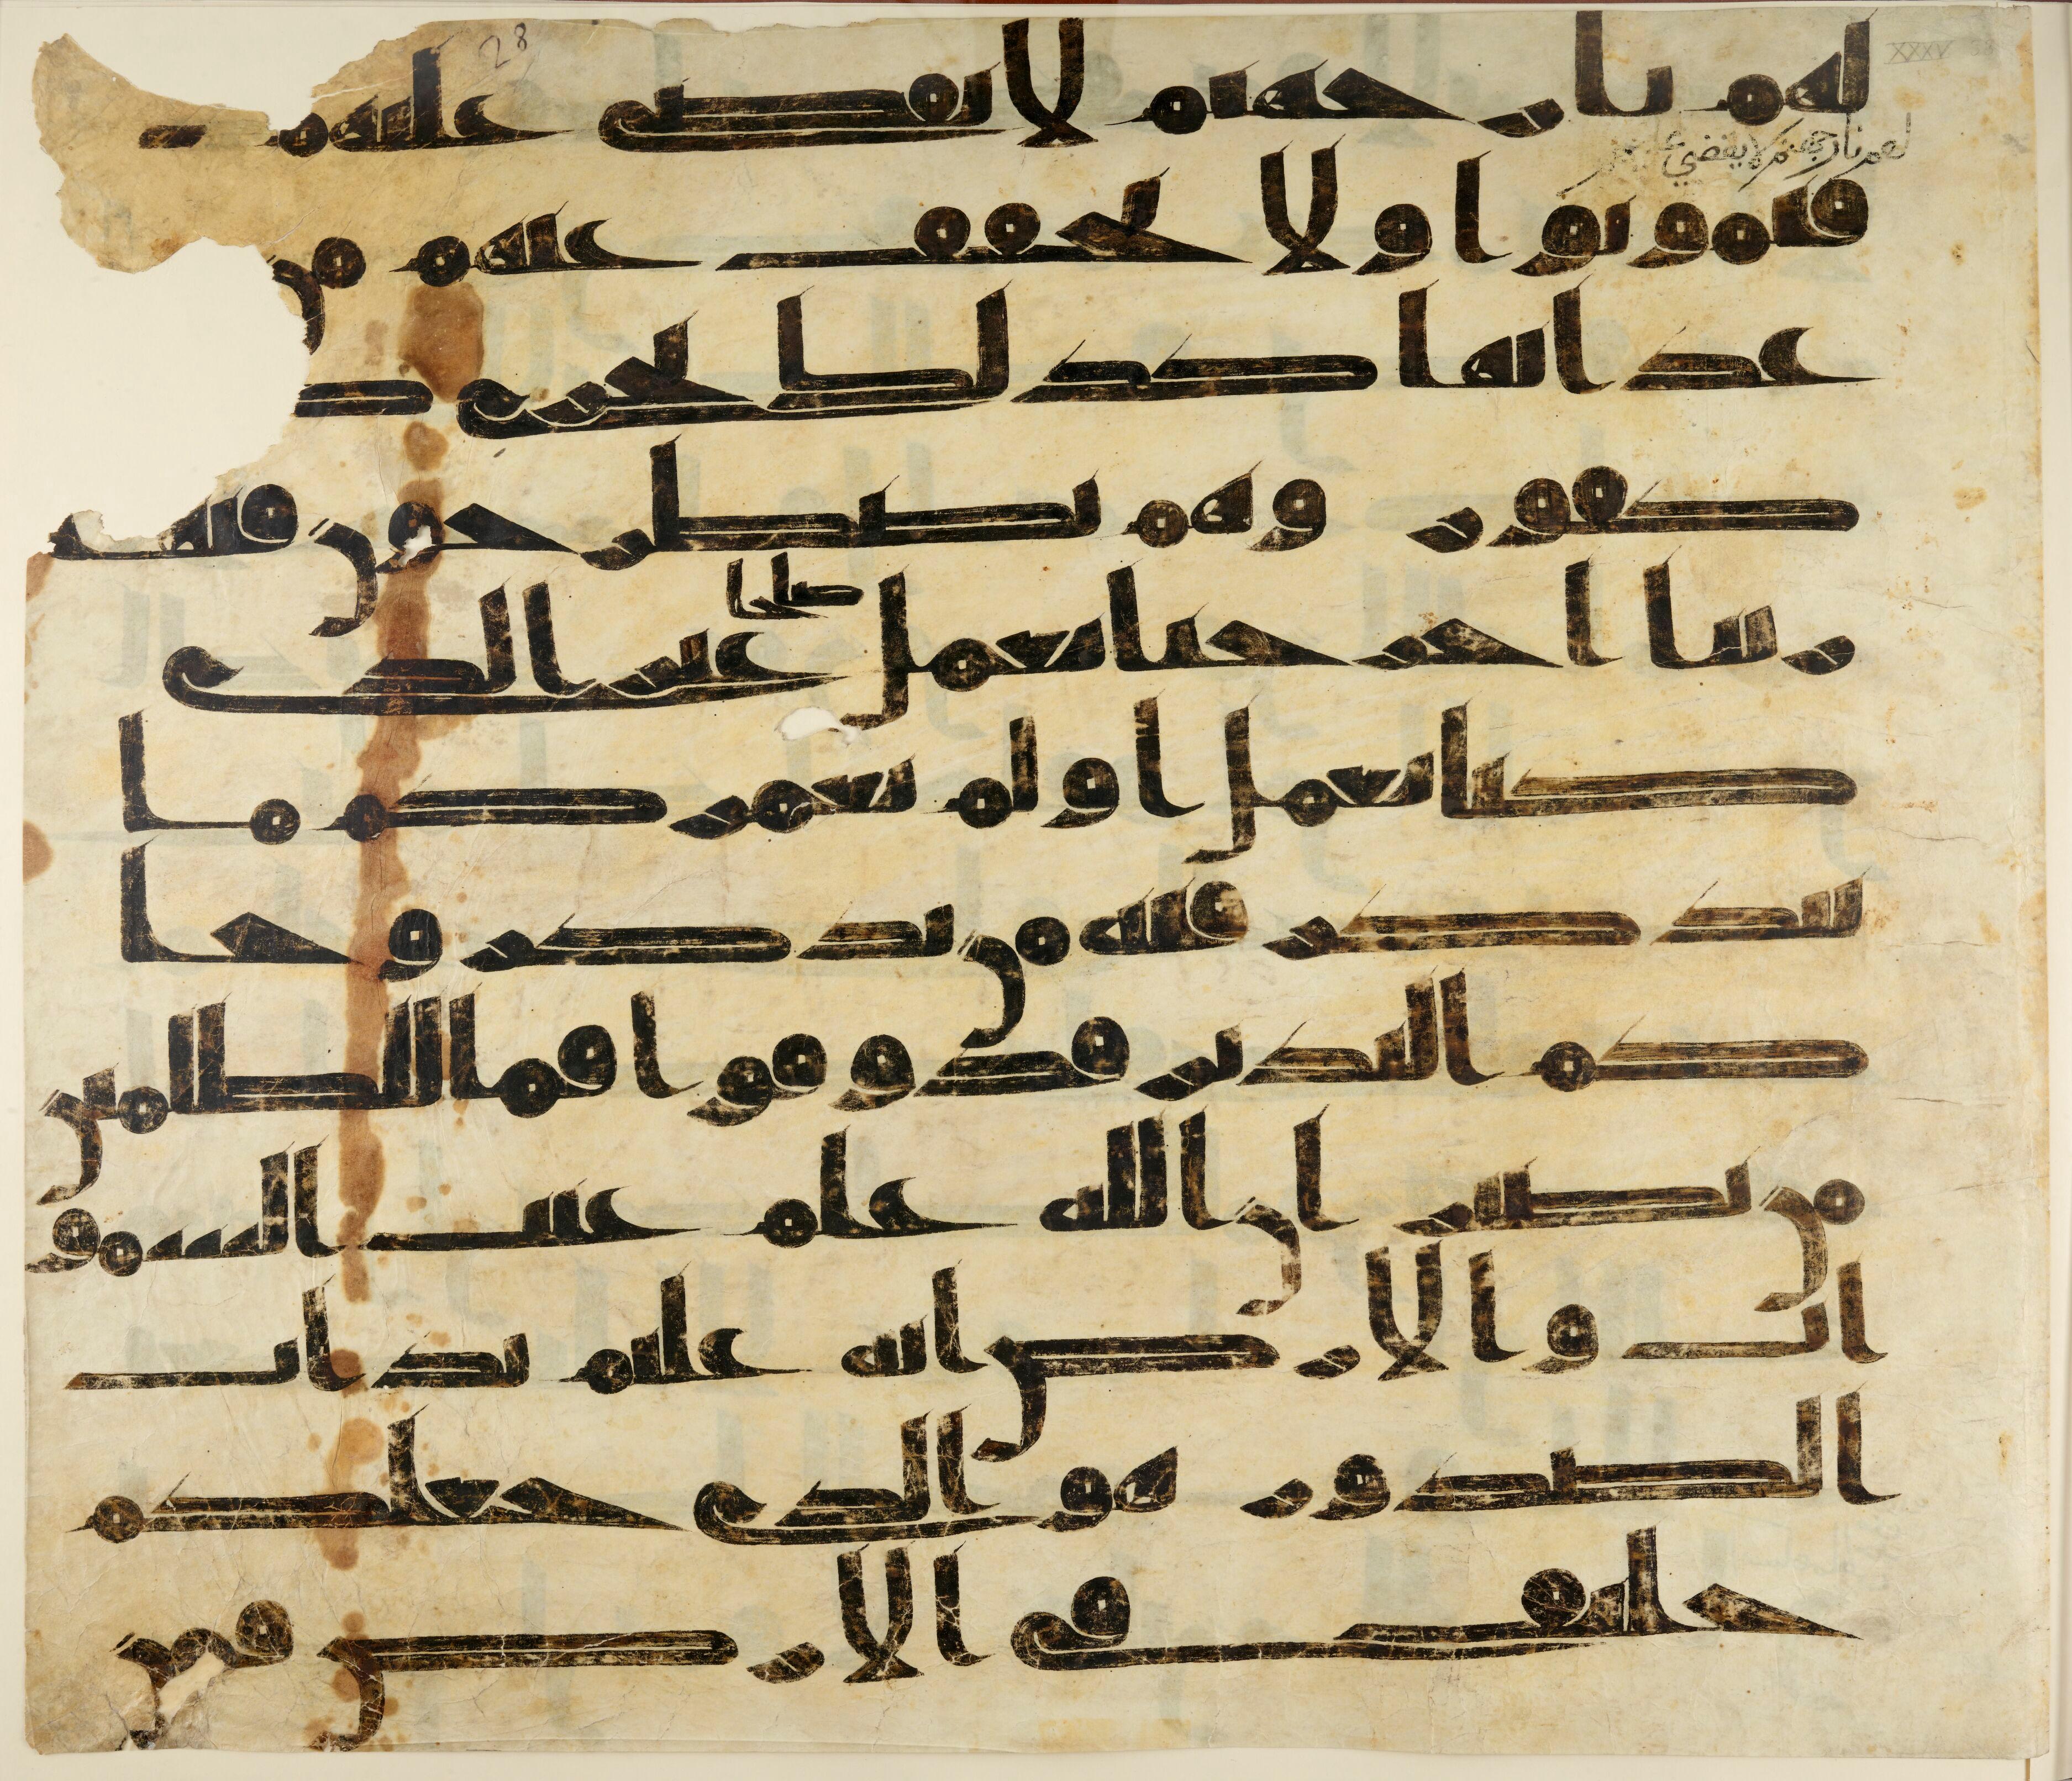 28
XXXV
لهم نار جهنم لا يقضى عليهم
لهم نار جهنم لا يقضي
فيموتوا ولا يخفف عليهم من
عذابها كذلك نجزى
كفور وهم يصطرخون فيها
ربنا اخرجنا نعمل صلحا غير الذى
كنا نعمل اولم نعمركم ما
يتذكر فيه من تذكر وجا
كم النذير فذوقوا فما للظلمين
من نصير ان الله علم غيب السمو
ات والارض انه عليم بذات
الصدور هو الذى جعلكم
خلئف فى الارض فمن